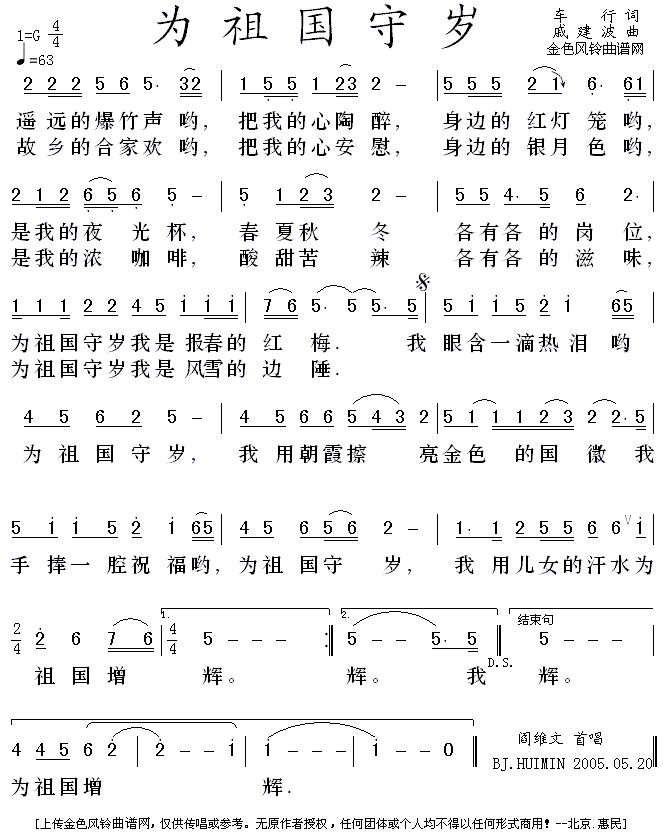 为祖国守岁
1=G 4/4
♩=63
车 行 词
戚 建 波 曲
金色风铃曲谱网
2 2 2 5 6 5· 32 | 1 5 5 1 23 2 - | 5 5 5 2 1 6· 61 |
遥远的爆竹声哟, 把我的心陶醉, 身边的红灯笼哟,
故乡的合家欢哟, 把我的心安慰, 身边的银月色哟,
2 1 2 6 5 6 5 - | 5 1 2 3 2 - | 5 5 4· 5 6 2· |
是我的夜光杯, 春夏秋冬 各有各的岗位,
是我的浓咖啡, 酸甜苦辣 各有各的滋味,
1 1 1 2 2 4 5 i i i | 7 6 5· 5 5· 5 | 5 i i 5 2 i 65 |
为祖国守岁我是报春的红梅. 我眼含一滴热泪哟
为祖国守岁我是风雪的边陲.
4 5 6 2 5 - | 4 5 6 6 5 4 3 2 | 5 1 1 1 2 3 2 2 5· 5 |
为祖国守岁, 我用朝霞擦亮金色的国徽我
5 i i 5 2 i 65 | 4 5 6 5 6 2 - | 1· 1 2 5 5 6 6 V i |
手捧一腔祝福哟, 为祖国守岁, 我用儿女的汗水为
2/4 2 6 7 6 | 4/4 1. 5 - - - :| 2. 5 - - 5· 5 | 结束句 5 - - - |
D.S.
祖国增辉。 辉。 我辉。
4 4 5 6 2 | 2 - - i | i - - - | i - - 0 ‖
为祖国增 辉.
阎维文 首唱
BJ.HUIMIN 2005.05.20
[上传金色风铃曲谱网，仅供传唱或参考。无原作者授权，任何团体或个人均不得以任何形式商用！--北京.惠民]